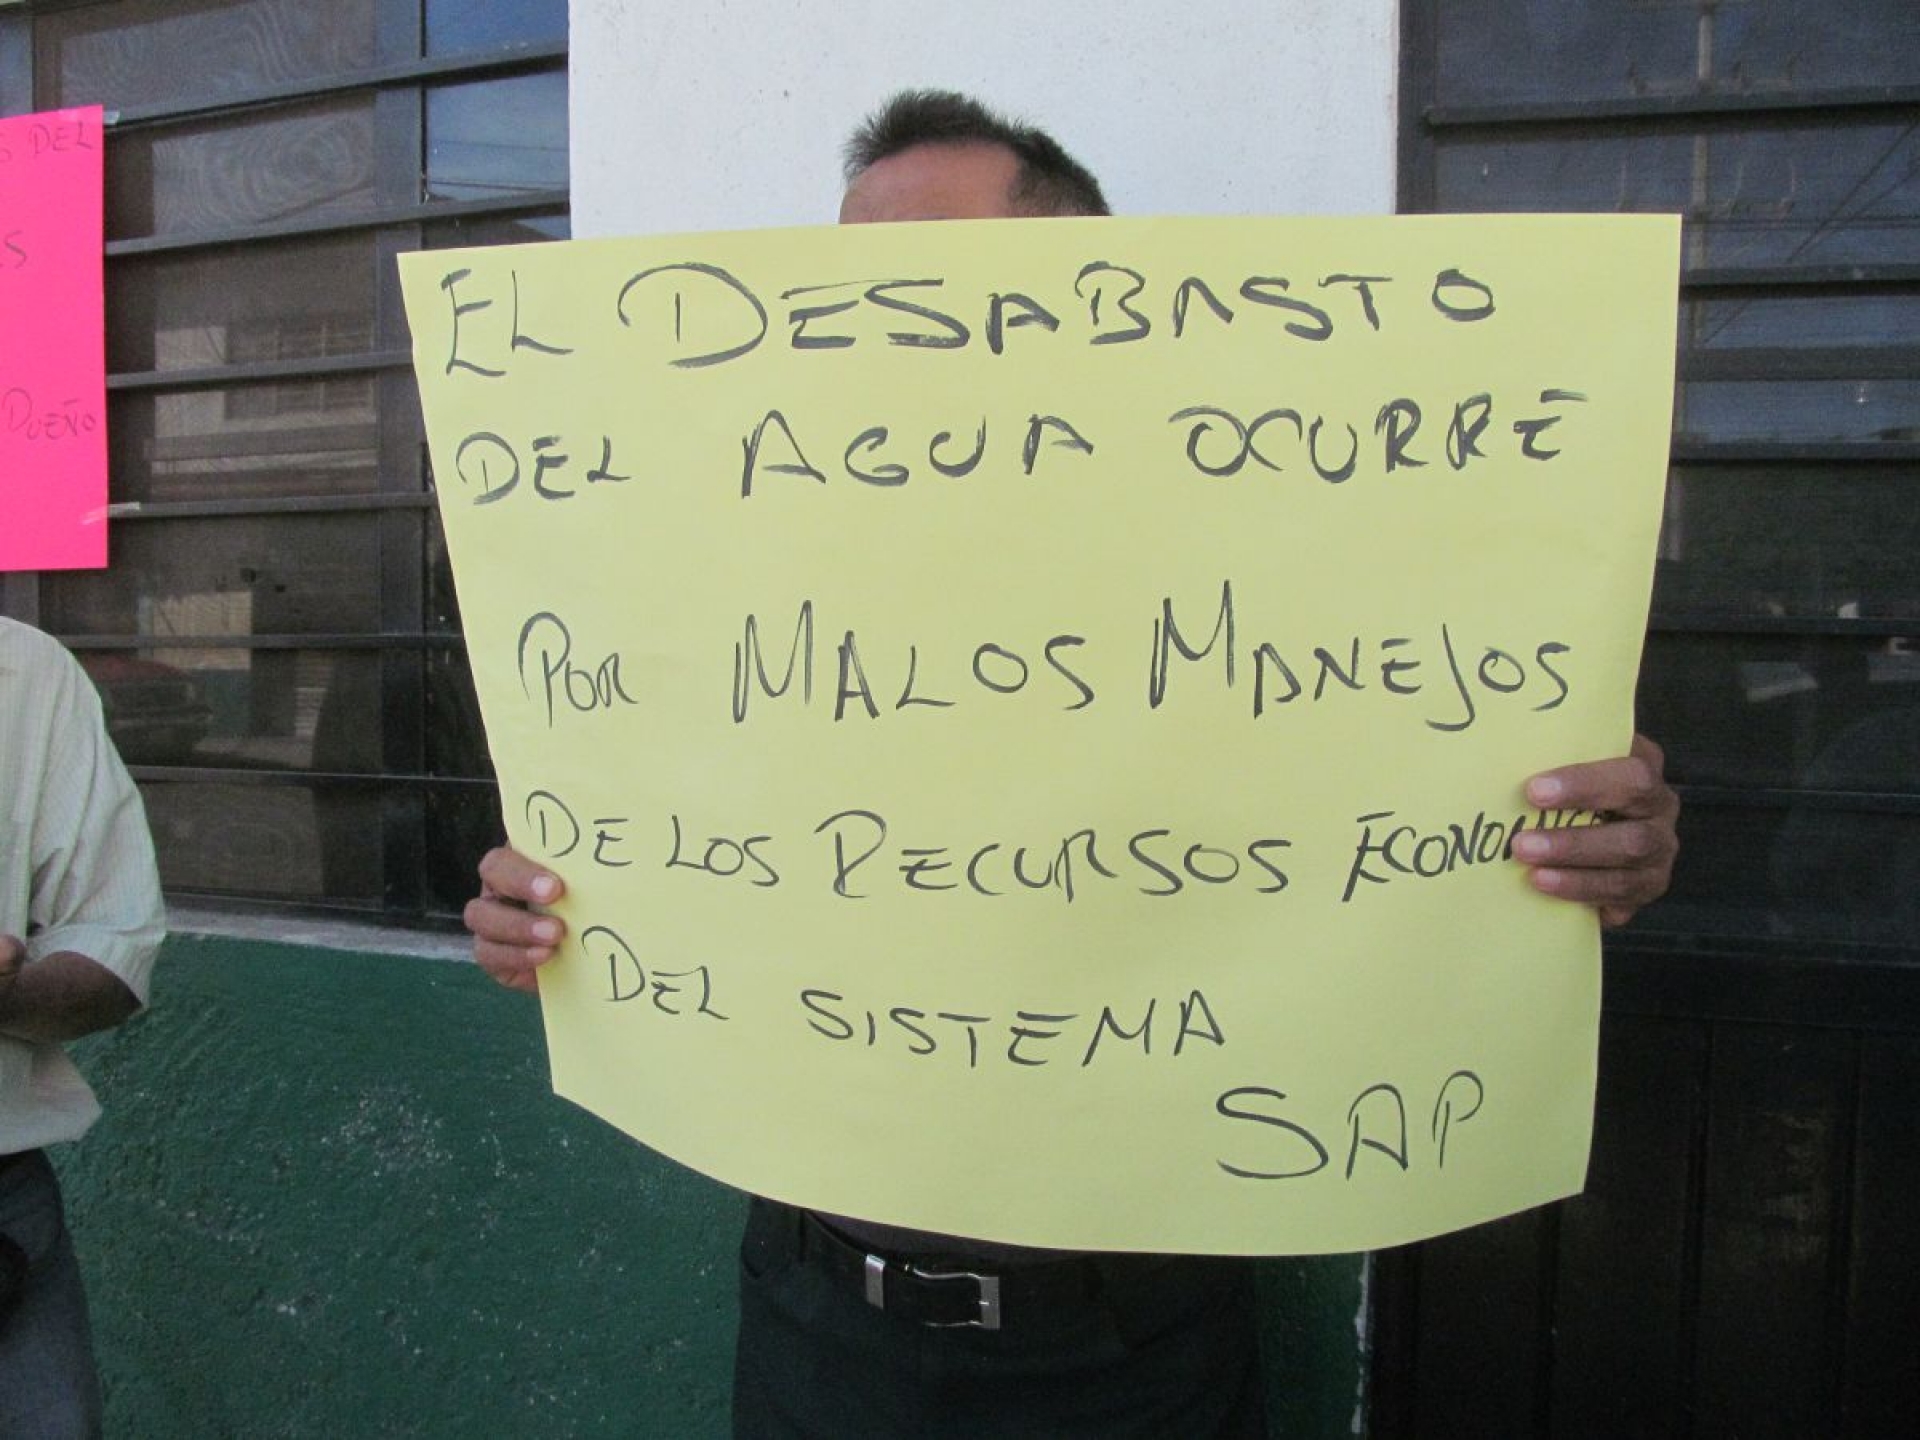 S DEL
S
DUEÑO
EL DESABASTO
DEL AGUA OCURRE
POR MALOS MANEJOS
DE LOS RECURSOS
DEL SISTEMA
SAP